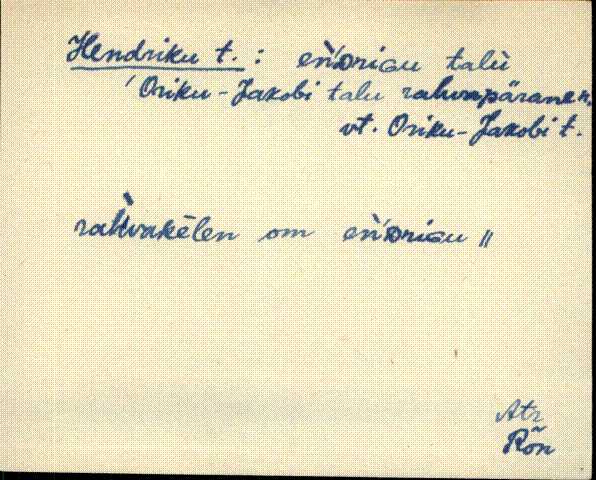 Hendriku t. : eǹ'drigu talù
'Oriku-Jakobi talu rahvapärane n.
vt. Oriku-Jakobi t.
rahvakēlen om eǹ'drigu //
Rõn